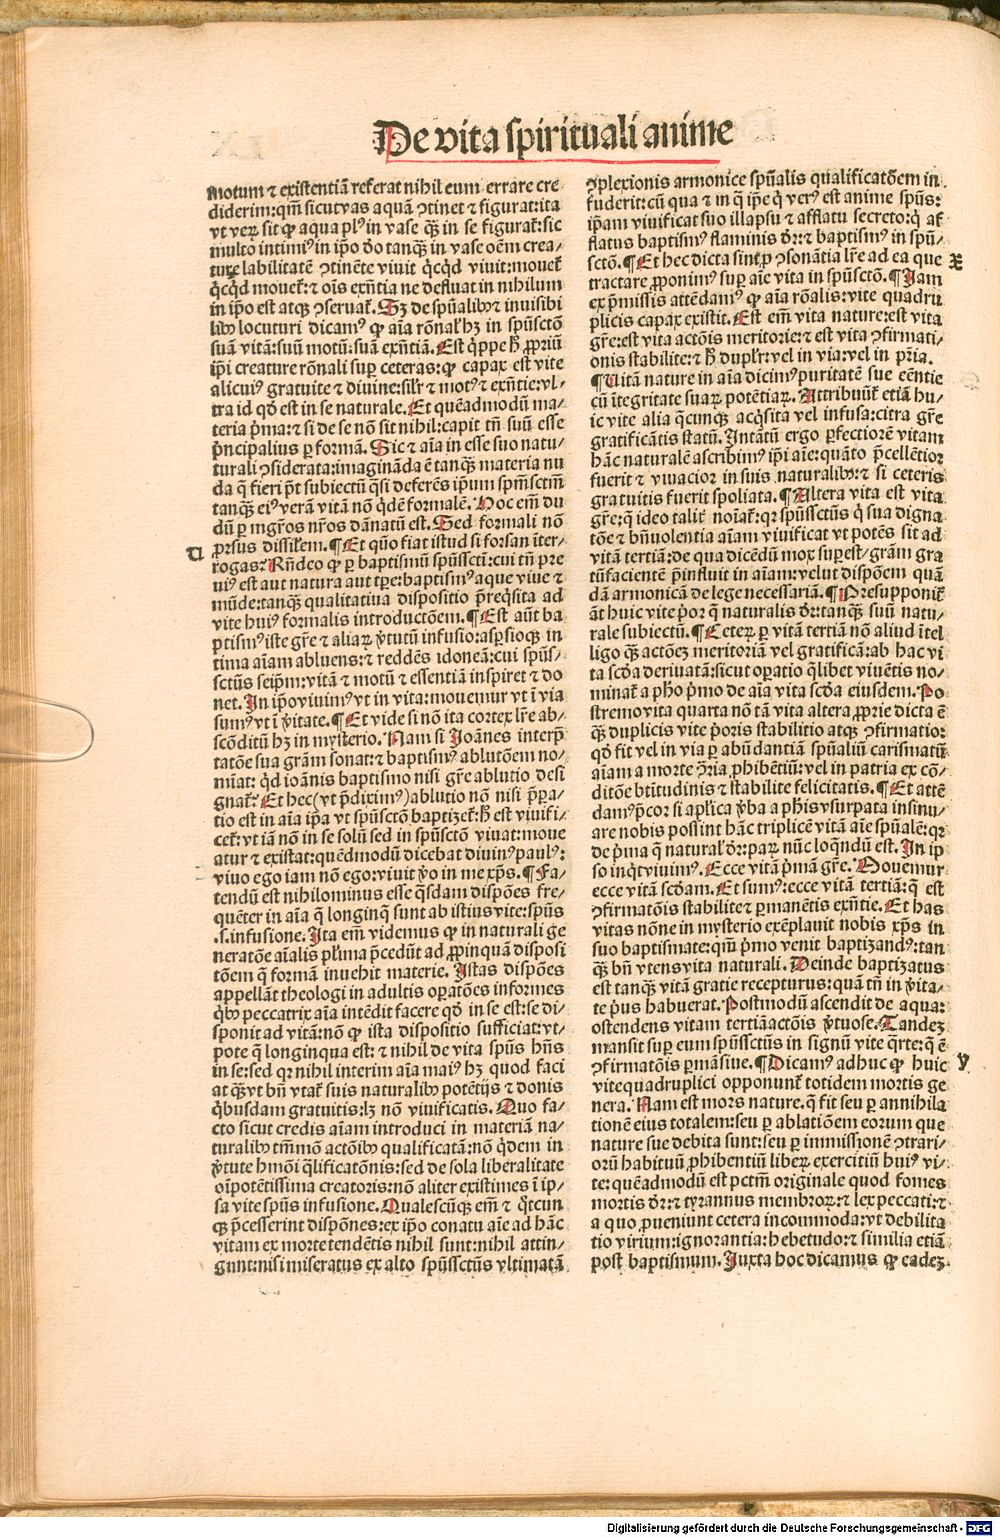 De vita spirituali anime
motum ⁊ existentiā referat nihil eum errare cre
diderim:qm̄ sicut vas aquā ꝯtinet ⁊ figurat:ita
vt veꝝ sit ꝙ aqua plꝰ in vase q̄ꝫ in se figurat᷑:sic
multo intimiꝰ in ip̄o deo tanq̄ꝫ in vase oēm crea/
ture labilitatē ꝯtinēte viuit q̇cq̇d viuit:mouet᷑
q̇cq̇d mouet᷑:⁊ oīs exn̄tia ne defluat in nihilum
in ip̄o est atqꝫ ꝯseruat᷑. Sꝫ de spūalibꝰ ⁊ inuisibi
libꝰ locuturi dicamꝰ ꝙ aīa rōnal' hꝫ in spūsctō
suā vitā:suū motū:suā exn̄tiā. Est q̇ppe h̄ ꝓpriū
ip̄i creature rōnali suꝑ ceteras:ꝙ capax est vite
alicuiꝰ gratuite ⁊ diuine:sil'r ⁊ motꝰ ⁊ exn̄tie:vl/
tra id qd̄ est in se naturale. Et quēadmodū ma/
teria p̄ma:⁊ si de se nō sit nihil:capit tn̄ suū esse
p̄ncipalius ꝑ formā. Sic ⁊ aīa in esse suo natu/
turali ꝯsiderata:imagināda ē tanq̄ꝫ materia nu
da q̄ fieri pōt subiectū q̄si deferēs ip̄um spm̄sctm̄
tanq̄ꝫ eiꝰ verā vitā nō q̇dē formalē. Hoc em̄ du
dū ꝑ mgr̄os nr̄os dānatū est. Sed formali nō
ꝓrsus dissil'em. ¶ Et quō fiat istud si forsan īter/
rogas? Rn̄deo ꝙ ꝑ baptismū spūsscti:cui tn̄ pre
uiꝰ est aut natura aut tꝑe:baptismꝰ aque viue ⁊
mūde:tanq̄ꝫ qualitatiua dispositio p̄req̇sita ad
vite huiꝰ formalis introductōem. ¶ Est aūt ba
ptismꝰ iste gr̄e ⁊ aliaꝝ v̓tutū infusio:aspersioqꝫ in
tima aīam abluens:⁊ reddēs idoneā:cui spūs/
sctūs seip̄m:vitā ⁊ motū ⁊ essentiā inspiret ⁊ do
net. In ip̄o viuimꝰ vt in vita:mouemur vt ī via
sumꝰ vt ī v̓itate. ¶ Et vide si nō ita cortex l're ab/
scōditū hꝫ in mysterio. Nam si Joānes interp̄
tatōe sua grām sonat:⁊ baptismꝰ ablutōem no/
mīat: q̇d ioānis baptismo nisi gr̄e ablutio desi
gnat᷑? Et hec (vt p̄diximꝰ) ablutio nō nisi p̄para/
tio est in aīa ip̄a vt spūsctō baptizet᷑:h̄ est viuifi/
cet᷑:vt iā nō in se solū sed in spūsctō viuat:moue
atur ⁊ existat:quēdmodū dicebat diuinꝰ paulꝰ:
viuo ego iam nō ego:viuit v̓o in me xp̄s. ¶ Fa/
tendū est nihilominus esse q̄sdam dispōes fre/
quēter in aīa q̄ longinq̄ sunt ab istius vite:spūs
.s.infusione. Ista em̄ videmus ꝙ in naturali ge
neratōe aīalis pl'ima p̄cedūt ad ꝓpinquā disposi
tōem q̄ formā inuehit materie. Istas dispōes
appellāt theologi in adultis oꝑatōes informes
q̇bꝰ peccatrix aīa intēdit facere qd̄ in se est:se di/
sponit ad vitā:nō ꝙ ista dispositio sufficiat:vt/
pote q̄ longinqua est: ⁊ nihil de vita spūs hn̄s
in se:sed qꝛ nihil interim aīa maiꝰ hꝫ quod faci
at q̄ꝫ vt bn̄ vtat᷑ suis naturalibꝰ potētijs ⁊ donis
q̇busdam gratuitis:lꝫ nō viuificatis. Quo fa/
cto sicut credis aīam introduci in materiā na/
turalibꝰ tm̄mō actōibꝰ qualificatā:nō q̇dem in
v̓tute hmōi q̄lificatōnis:sed de sola liberalitate
oīpotētissima creatoris:nō aliter existimes ī ip/
sa vite spūs infusione. Qualescūqꝫ em̄ ⁊ q̄tcun
qꝫ p̄cesserint dispōnes:ex ip̄o conatu aīe ad hāc
vitam ex morte tendētis nihil sunt:nihil attin/
gunt:nisi miseratus ex alto spūssctūs vltimatā
ꝯplexionis armonice spūalis qualificatōem in
fuderit:cū qua ⁊ in q̄ ip̄e q̇ verꝰ est anime spūs:
ip̄am viuificat suo illapsu ⁊ afflatu secreto:q̇ af
flatus baptismꝰ flaminis dr̄:⁊ baptismꝰ in spū/
sctō. ¶ Et hec dicta sint ꝓ ꝯsonātia l're ad ea que
tractare ꝓponimꝰ suꝑ aīe vita in spūsctō. ¶ Jam
ex p̄missis attēdamꝰ ꝙ aīa rōalis:vite quadru
plicis capax existit. Est em̄ vita nature:est vita
gr̄e:est vita actōis meritorie:⁊ est vita ꝯfirmati/
onis stabilite:⁊ h̄ dupl'r:vel in via:vel in pr̄ia.
¶ Uitā nature in aīa dicimꝰ puritatē sue eēntie
cū ītegritate suaꝝ potētiaꝝ. Attribuūt᷑ etiā hu/
ic vite alia q̄cunqꝫ acq̇sita vel infusa:citra gr̄e
gratificātis statū. Intātū ergo ꝑfectiorē vitam
hāc naturalē ascribimꝰ ip̄i aīe:quāto p̄cellētior
fuerit ⁊ viuacior in suis naturalibꝰ:⁊ si ceteris
gratuitis fuerit spoliata. ¶ Altera vita est vita
gr̄e:q̄ ideo talit᷑ noīat᷑:qꝛ spūssctūs q̇ sua digna
tōe ⁊ bn̄uolentia aīam viuificat vt potēs sit ad
vitā tertiā:de qua dicēdū mox suꝑest/grām gra
tūfacientē p̄influit in aīam:velut dispōem quā
dā armonicā de lege necessariā. ¶ Presupponit᷑
āt huic vite p̓or q̄ naturalis dr̄:tanq̄ꝫ suū natu/
rale subiectū. ¶ Ceteꝝ ꝑ vitā tertiā nō aliud ītel
ligo q̄ꝫ actōeꝫ meritoriā vel gratificā:ab hac vi
ta scd̄a deriuatā:sicut oꝑatio q̄libet viuētis no/
minat᷑ a pho p̓mo de aīa vita scd̄a eiusdem. Po
stremo vita quarta nō tā vita altera ꝓprie dicta ē
q̄ꝫ duplicis vite p̓oris stabilitio atqꝫ ꝯfirmatio:
qd̄ fit vel in via ꝑ abūdantiā spūaliū carismatū
aīam a morte ꝯtria ꝓhibētiū:vel in patria ex cō/
ditōe btītudinis ⁊ stabilite felicitatis. ¶ Et attē
damꝰ p̄cor si apl'ica v̓ba a phis vsurpata insinu/
are nobis possint hāc triplicē vitā aīe spūalē:qꝛ
de p̓ma q̄ natural' dr̄:paꝝ nūc loq̄ndū est. In ip
so inq̇t viuimꝰ. Ecce vitā p̓mā gr̄e. Mouemur
ecce vitā scd̄am. Et sumꝰ:ecce vitā tertiā:q̄ est
ꝯfirmatōis stabilite ⁊ ꝑmanētis exn̄tie. Et has
vitas nōne in mysterio exēplauit nobis xp̄s in
suo baptismate:qm̄ p̓mo venit baptizandꝰ:tan
q̄ꝫ bn̄ vtens vita naturali. Deinde baptizatus
est tanq̄ꝫ vitā gratie recepturus:quā tn̄ in v̓ita/
te p̓us habuerat. Postmodū ascendit de aqua:
ostendens vitam tertiā actōis v̓tuose. Tandeꝫ
mansit suꝑ eum spūssctūs in signū vite q̄rte:q̄ ē
ꝯfirmatōis ꝑmāsiue. ¶ Dicamꝰ adhuc ꝙ huic
vite quadruplici opponunt᷑ totidem mortis ge
nera. Nam est mors nature.q̄ fit seu ꝑ annihila
tionē eius totalem:seu ꝑ ablatiōem eorum que
nature sue debita sunt:seu ꝑ immissionē ꝯtrari/
orū habituū ꝓhibentiū libeꝝ exercitiū huiꝰ vi/
te: quēadmodū est pctm̄ originale quod fomes
mortis dr̄:⁊ tyrannus membroꝝ:⁊ lex peccati:⁊
a quo ꝓueniunt cetera incommoda:vt debilita
tio virium:ignorantia:hebetudo:⁊ similia etiā
post baptismum. Juxta hoc dicamus ꝙ eadeꝫ
x
y
Digitalisierung gefördert durch die Deutsche Forschungsgemeinschaft - DFG